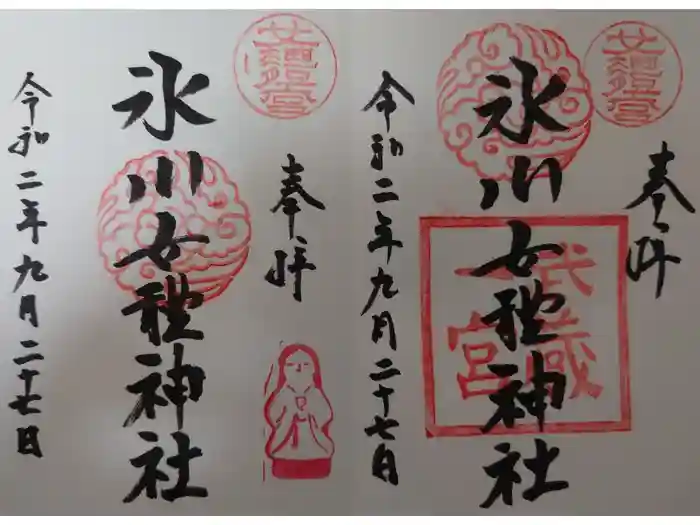 奉拝
武蔵
一宮
氷川女體神社
令和二年九月二十七日
奉拝
氷川女體神社
令和二年九月二十七日